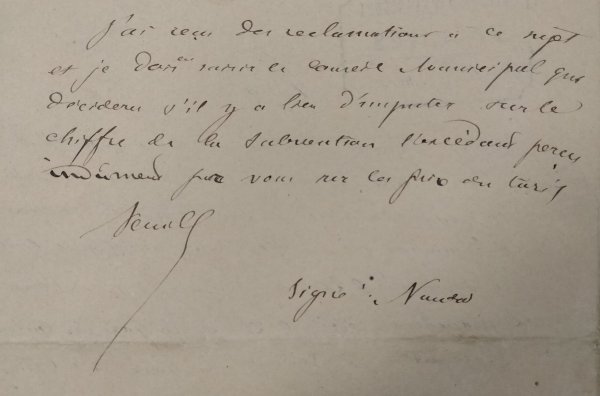 J'ai reçu des reclamations à ce sujet
et je dois en saisir le Conseil Municipal qui
décidera s'il y a lieu d'imputer sur le
chiffre de la Subvention l'excédant perçu
indûment par vous sur les prix du tarif
Signé :